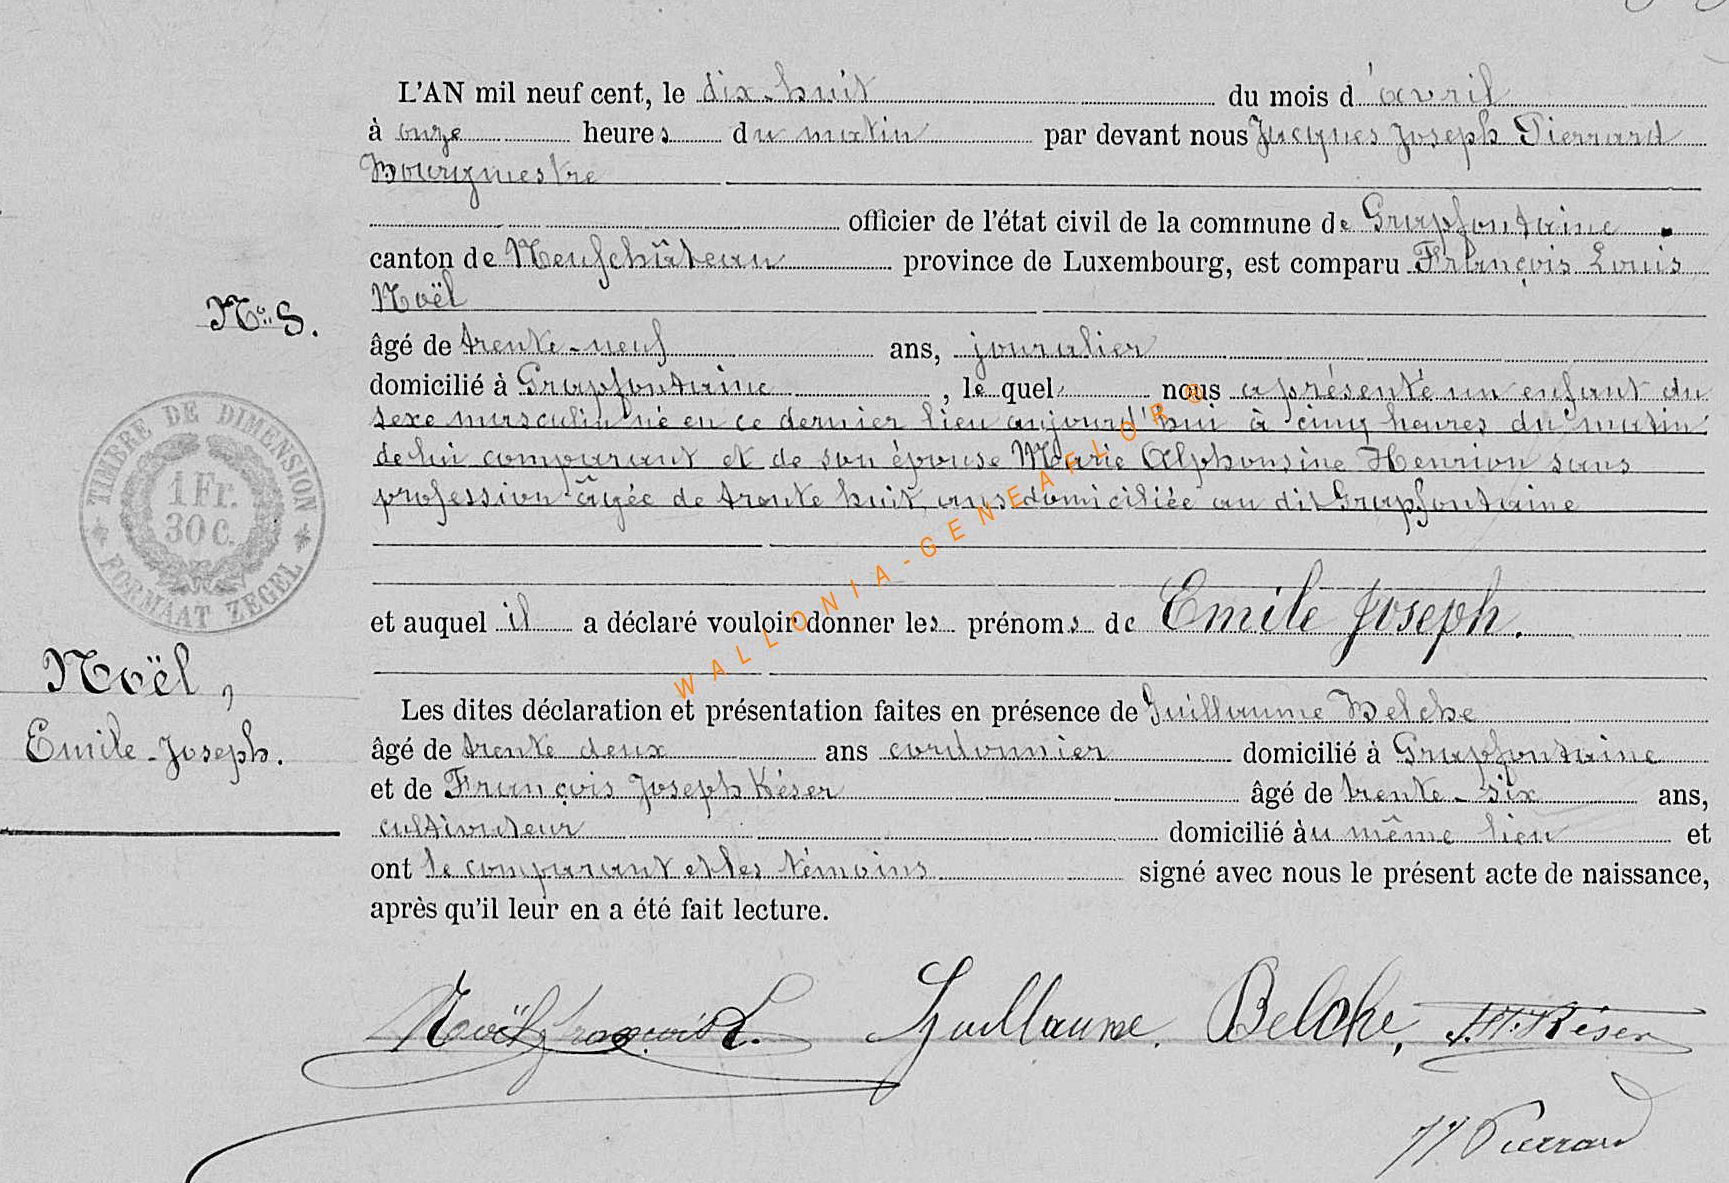 L'AN mil neuf cent, le dix-huit du mois d'avril
à onze heures du matin par devant nous Jacques Joseph Pierrard
Bourgmestre
officier de l'état civil de la commune de Grapfontaine
canton de Neufchâteau province de Luxembourg, est comparu François Louis
Noël
No 8.
âgé de trente-neuf ans, journalier
domicilié à Grapfontaine, lequel nous a présenté un enfant du
sexe masculin né en ce dernier lieu aujourd'hui à cinq heures du matin
de lui comparant et de son épouse Marie Alphonsine Henrion sans
profession âgée de trente huit ans domiciliée au dit Grapfontaine
TIMBRE DE DIMENSION
1 Fr.
30 c.
FORMAAT ZEGEL
et auquel il a déclaré vouloir donner les prénoms de Emile Joseph.
Noël,
Emile-Joseph.
Les dites déclaration et présentation faites en présence de Guillaume Belche
âgé de trente deux ans cordonnier domicilié à Grapfontaine
et de François Joseph Késer âgé de trente-six ans,
cultivateur domicilié àu même lieu et
ont le comparant et les témoins signé avec nous le présent acte de naissance,
après qu'il leur en a été fait lecture.
Noël François L. Guillaume Belche, Késer
JJ Pierrard
WALLONIA-GENEAFLOR ©